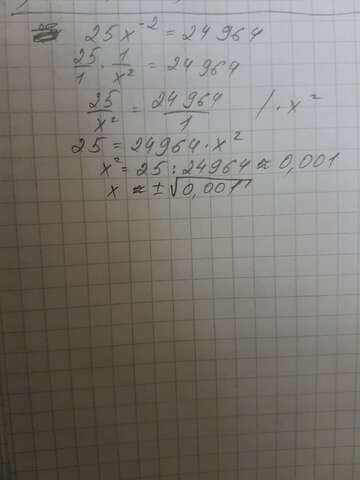 25x⁻² = 24964
25/1 · 1/x² = 24964
25/x² = 24964/1 / · x²
25 = 24964 · x²
x² = 25 : 24964 ≈ 0,001
x ≈ ±√0,001